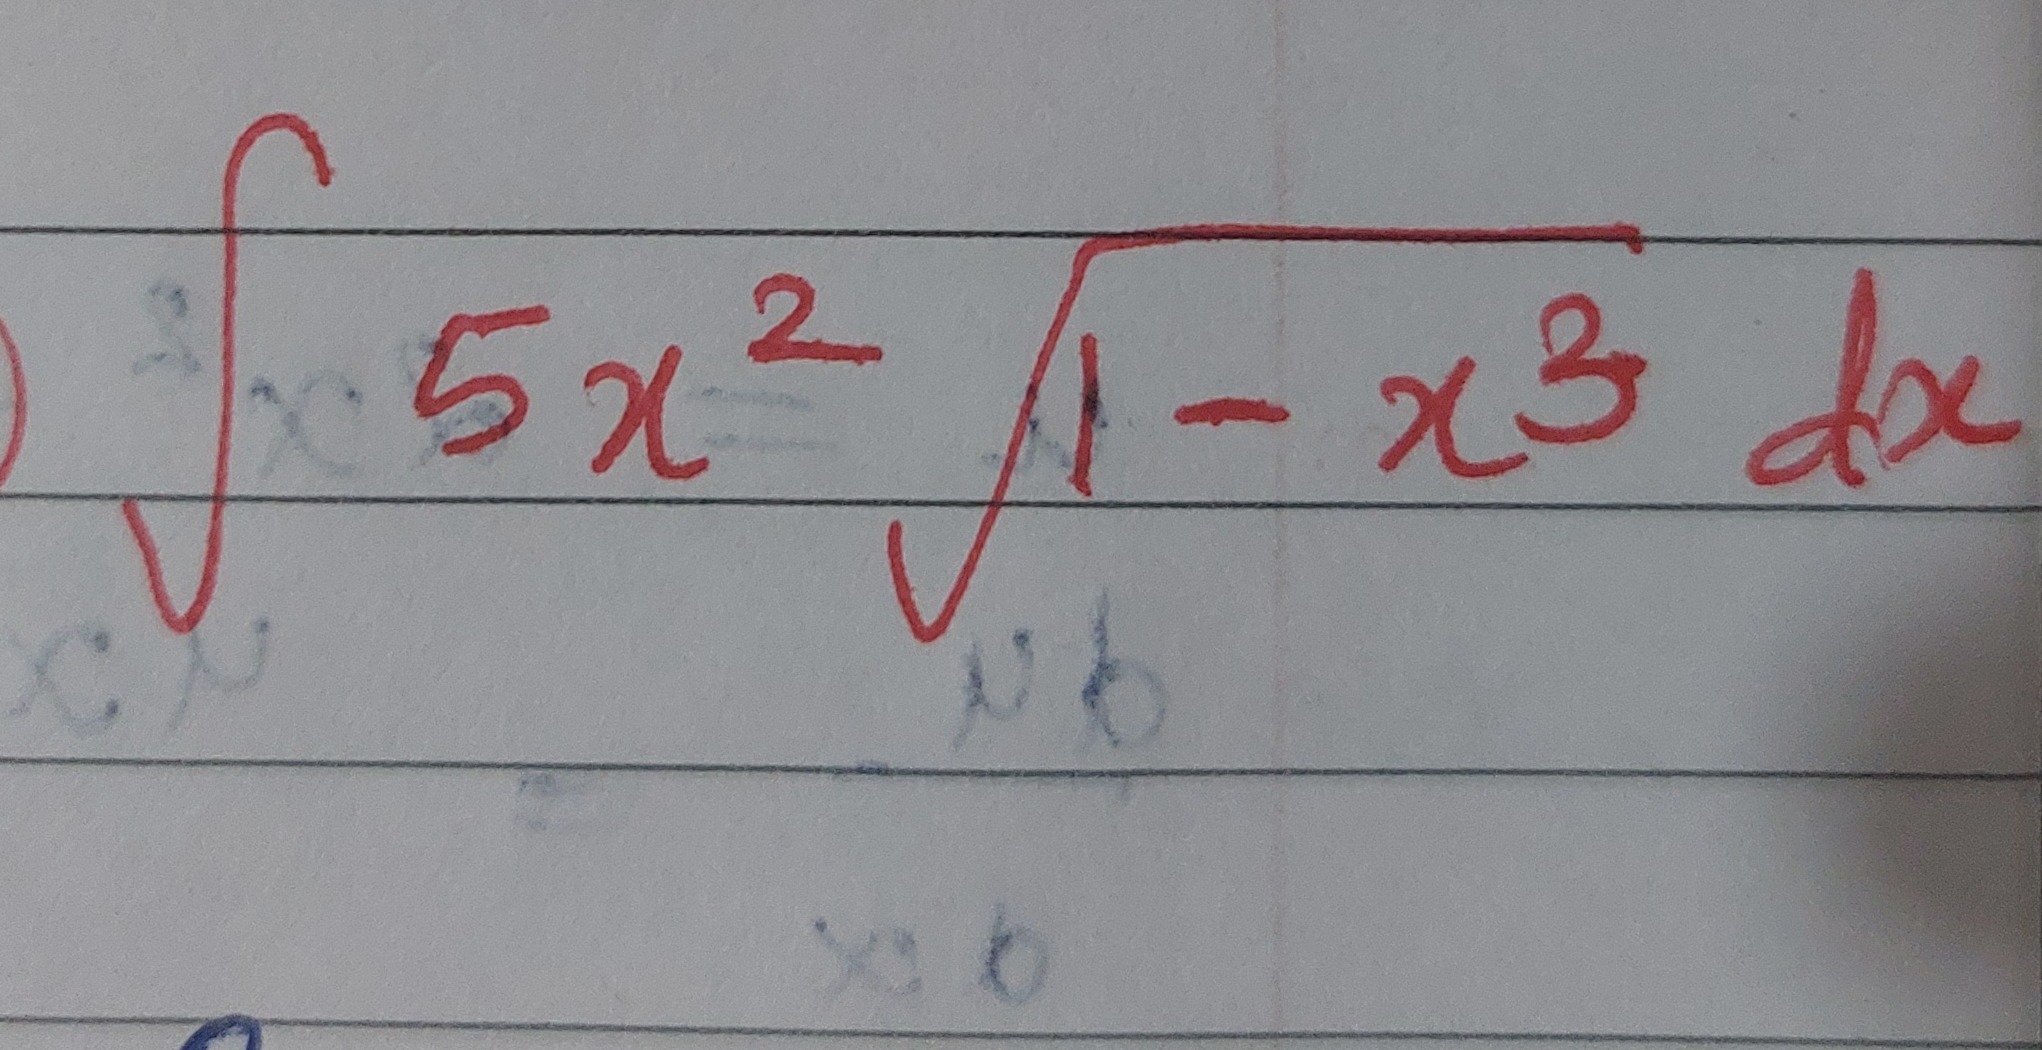 ) ∫ 5x² √(1 - x³) dx